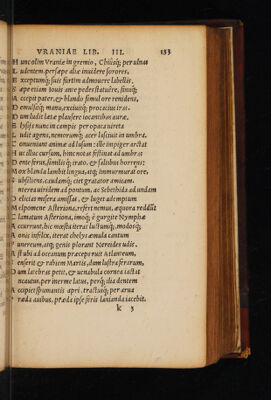 VRANIAE LIB. III. 133
H unc olim Vranie in gremio, Chiusq; per ulnas
L udentem persæpe aliæ inuidere sorores,
E xceptumq; suis furtim admouere labellis,
S æpe etiam Iouis ante pedes statuere, sinuq;
A ccepit pater, & blando simul ore renidens,
D emulsitq; manu, exciuitq; procacius iras.
D um ludit lætæ plausere iocantibus auræ.
E lysijs nunc in campis per opaca uireta
L udit agens, nemorumq; acer lasciuit in umbra.
C onueniunt animæ ad lusum: ille impiger arctat
H uc illuc cursum, hinc notas festinat ad umbras
D ente ferus, similis q; irato, & salibus borrens;
M ox blanda lambit lingua, atq; immurmurat ore,
S ubsiliens. caudamq; ciet gratator amicam.
nterea uiridem ad pontum, ac Sebethida ad undam
D elicias misera amissas, & luget ademptum
M elpomene Asteriona, refert nemus, æquora reddūt
C lamatum Asteriona, imoq; è gurgite Nymphæ
A ccurrunt, hic mœsta iterat luctumq; modosq;
A onis infelix, iterat chelys æmula cantum
F unereumq; genis plorant Nereides udis.
A st ubi ad oceanum præceps ruit Atlanteum,
S enserit & rabiem Martis, dum lustra ferarum,
D um latebras petit, & uenabula cornea iactat
I ncautus, per inerme latus, perq; ilia dentem
A ccipiet spumantis apri. tractusq; per arua
P ræda auibus, præda ipse feris lanianda iacebit.
k 3